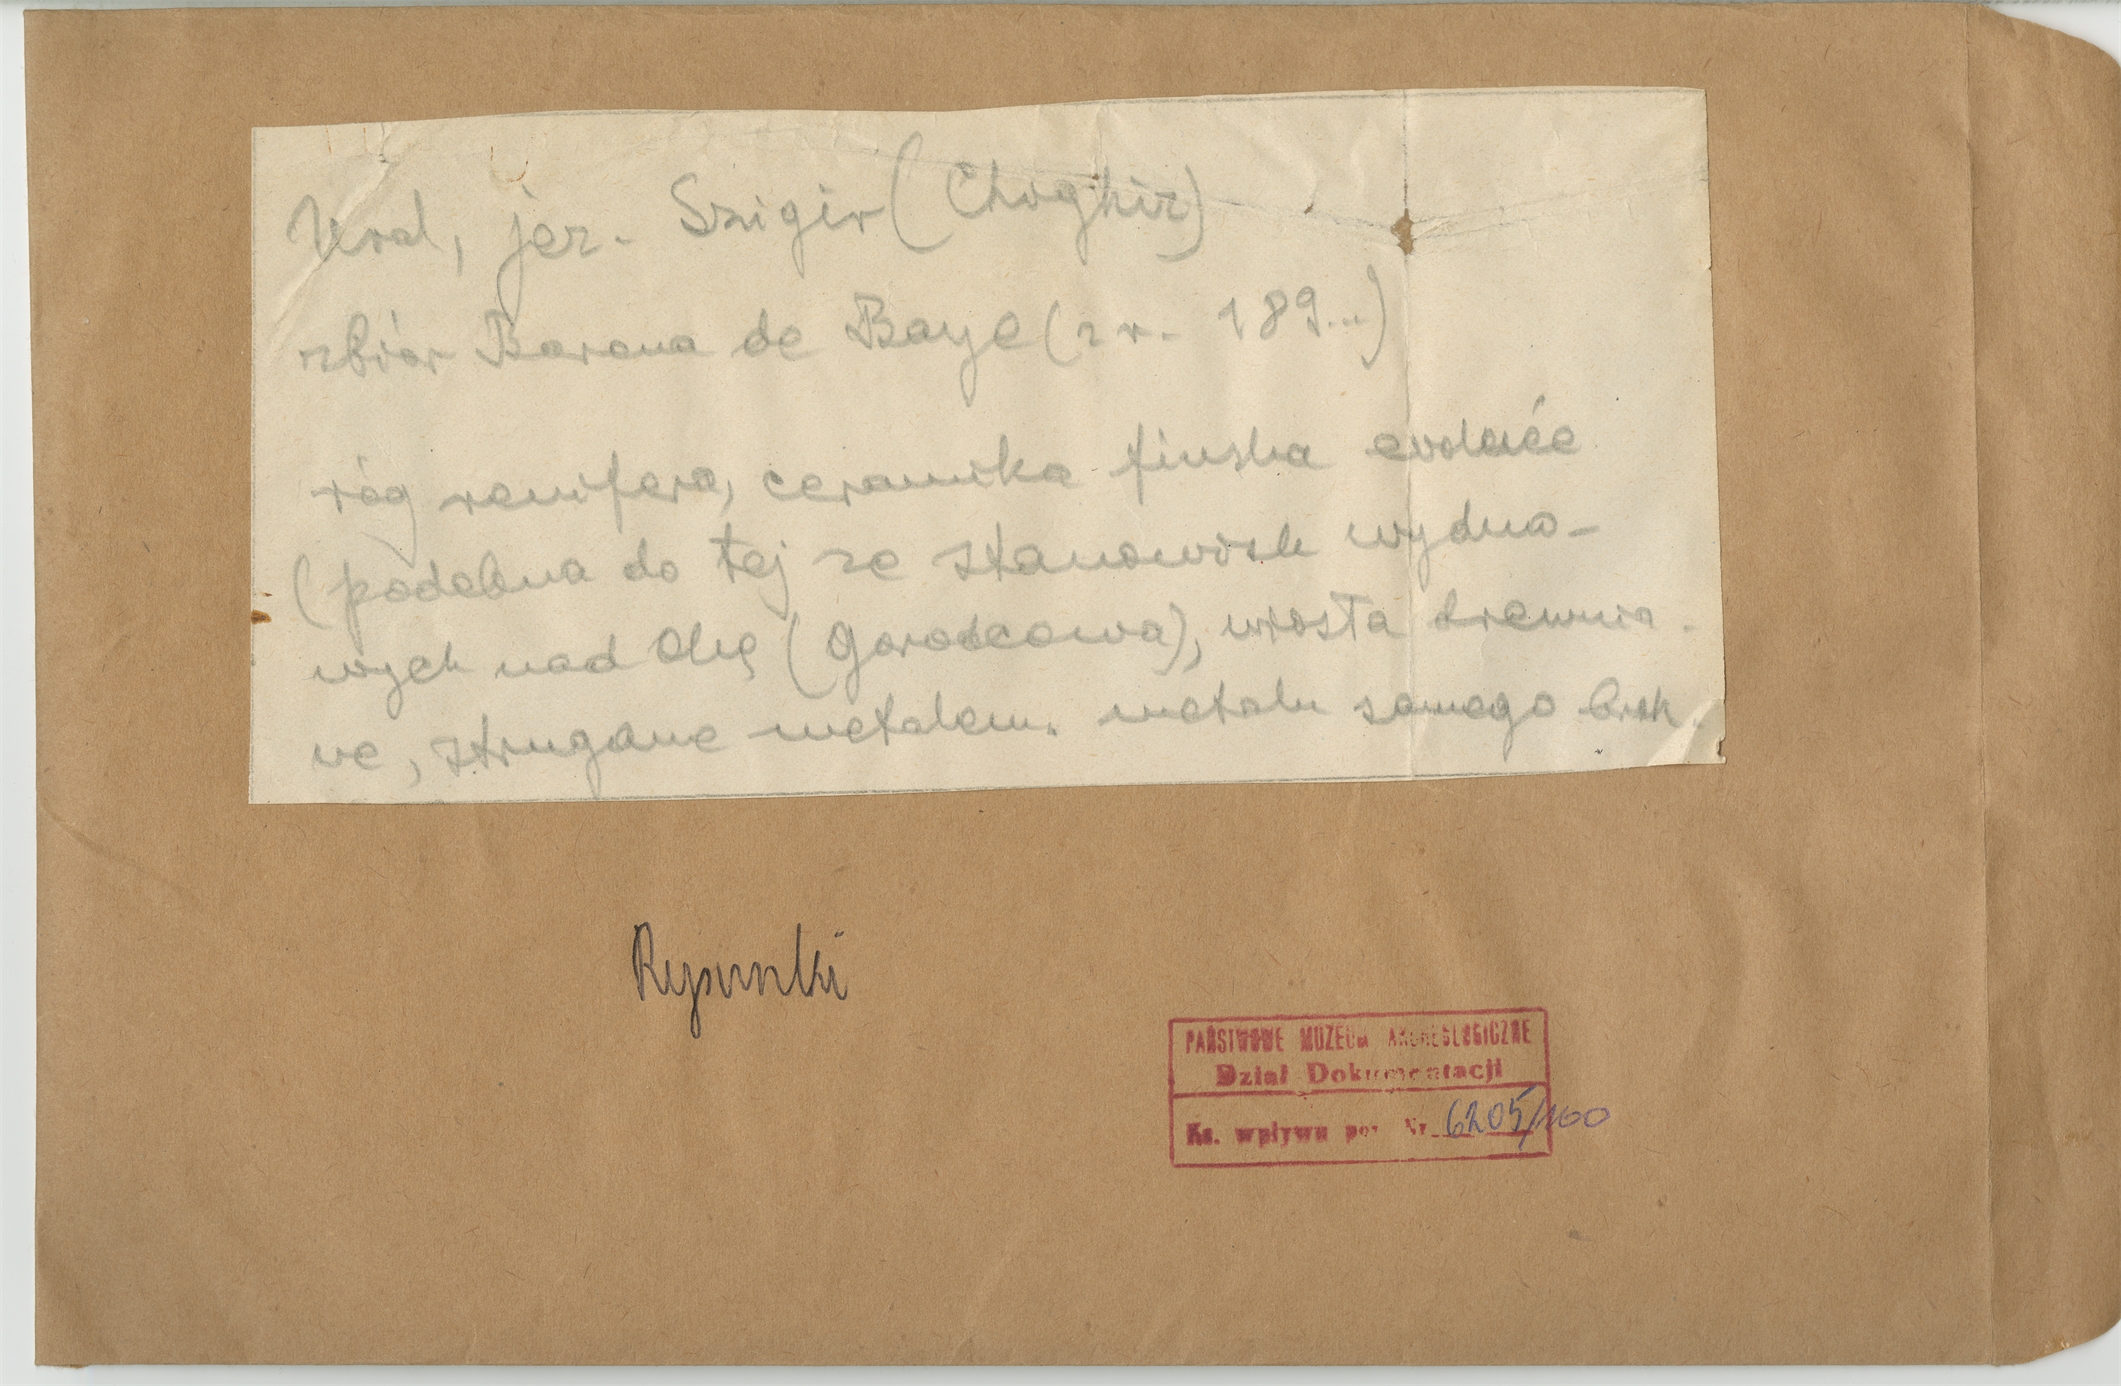 Ural, jez. Szigir (Chighir)
zbiór Barona de Baye (z r. 189...)
róg renifera, ceramika fińska evoluée
(podobna do tej ze stanowisk wydmo-
wych nad Oką (Gorodcowa), wiosła drewnia-
ne, strugane metalem. metalu samego brak.
Rysunki
PAŃSTWOWE MUZEUM ARCHEOLOGICZNE
Dział Dokumentacji
Ks. wpływu poz. Nr 6205/100